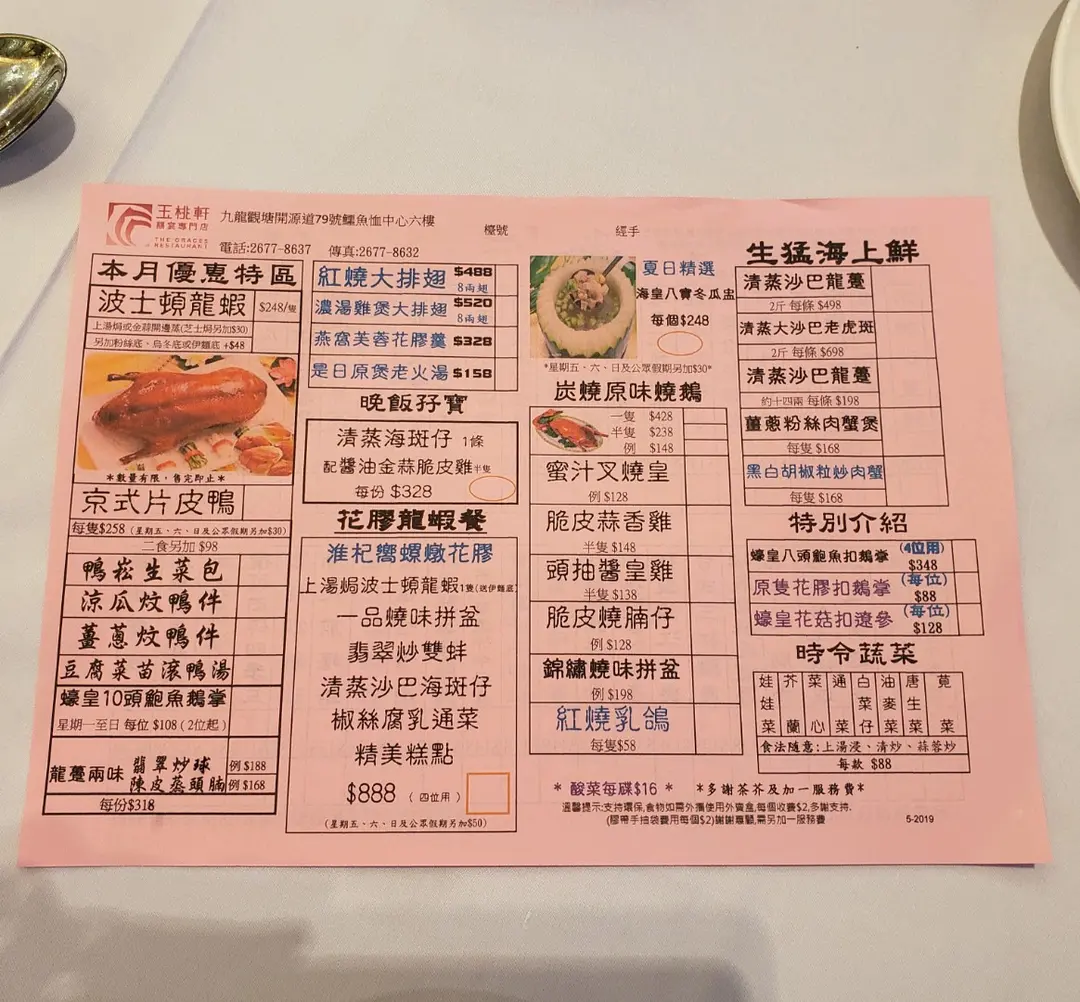 玉桃軒
囍宴專門店
THE GRACES
RESTAURANT
九龍觀塘開源道79號鱷魚恤中心六樓
電話:2677-8637 傳真:2677-8632
檯號
經手
本月優惠特區
波士頓龍蝦 $248/隻
上湯焗或金蒜開邊蒸(芝士焗另加$30)
另加粉絲底、烏冬底或伊麵底 +$48
*數量有限，售完即止*
京式片皮鴨
每隻$258 (星期五、六、日及公眾假期另加$30)
二食另加 $98
鴨崧生菜包
涼瓜炆鴨件
薑蔥炆鴨件
豆腐菜苗滾鴨湯
蠔皇10頭鮑魚鵝掌
星期一至日 每位 $108 ( 2位起 )
龍躉兩味
翡翠炒球 例 $188
陳皮蒸頭腩 例 $168
每份$318
紅燒大排翅 $488
8兩翅
濃湯雞煲大排翅 $520
8兩翅
燕窩芙蓉花膠羹 $328
是日原煲老火湯 $158
晚飯孖寶
清蒸海斑仔 1條
配醬油金蒜脆皮雞半隻
每份 $328
花膠龍蝦餐
淮杞嚮螺燉花膠
上湯焗波士頓龍蝦1隻(送伊麵底)
一品燒味拼盆
翡翠炒雙蚌
清蒸沙巴海斑仔
椒絲腐乳通菜
精美糕點
$888 ( 四位用 )
(星期五、六、日及公眾假期另加$50)
夏日精選
海皇八寶冬瓜盅
每個$248
*星期五、六、日及公眾假期另加$30*
炭燒原味燒鵝
一隻 $428
半隻 $238
例 $148
蜜汁叉燒皇
例 $128
脆皮蒜香雞
半隻 $148
頭抽醬皇雞
半隻 $138
脆皮燒腩仔
例 $128
錦繡燒味拼盆
例 $198
紅燒乳鴿
每隻$58
生猛海上鮮
清蒸沙巴龍躉
2斤 每條 $498
清蒸大沙巴老虎斑
2斤 每條 $698
清蒸沙巴龍躉
約十四兩 每條 $198
薑蔥粉絲肉蟹煲
每隻 $168
黑白胡椒粒炒肉蟹
每隻 $168
特別介紹
蠔皇八頭鮑魚扣鵝掌 (4位用)
$348
原隻花膠扣鵝掌 (每位)
$88
蠔皇花菇扣遼參 (每位)
$128
時令蔬菜
娃娃菜 芥蘭 菜心 通菜 白菜仔 油麥菜 唐生菜 莧菜
食法隨意:上湯浸、清炒、蒜蓉炒
每款 $88
* 酸菜每碟$16 * *多謝茶芥及加一服務費*
溫馨提示:支持環保,食物如需外攜使用外賣盒,每個收費$2,多謝支持.
(膠帶手抽袋費用每個$2)謝謝惠顧,需另加一服務費
5-2019